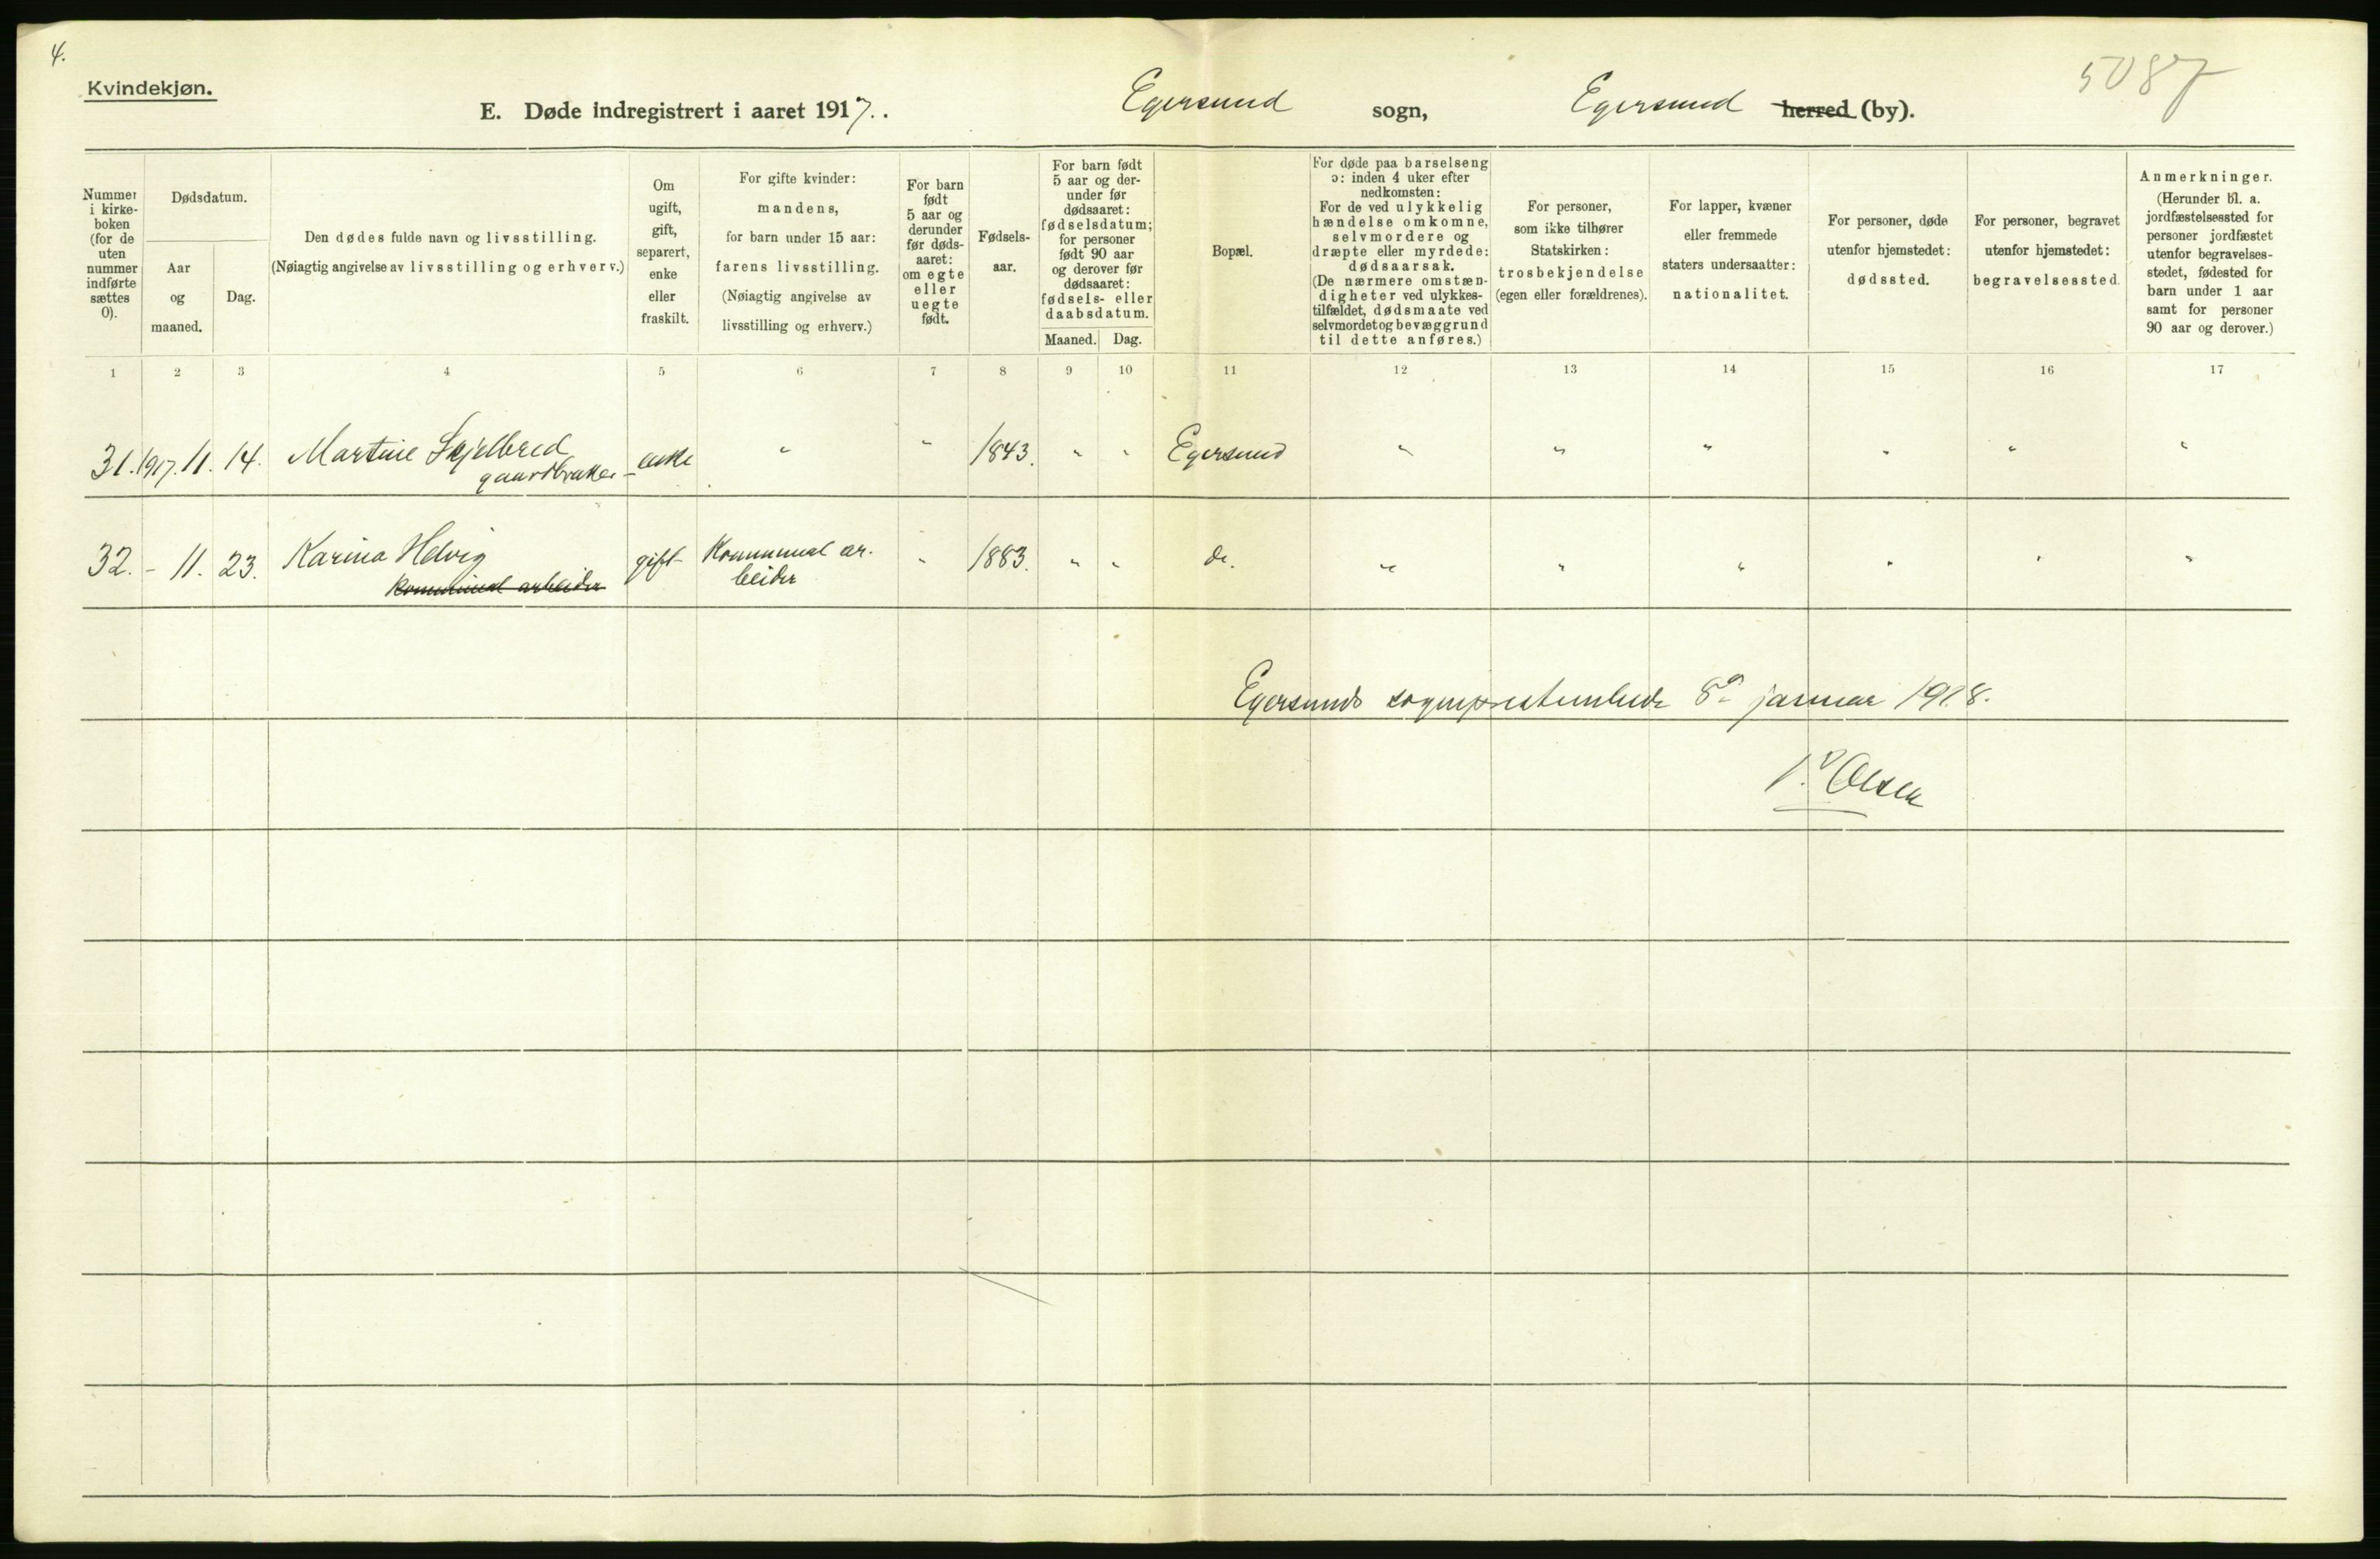 4.
Kvindekjøn.
5087
E. Døde indregistrert i aaret 1917. . Egersund sogn, Egersund herred (by).
Nummer
i kirke-
boken
(for de
uten
nummer
indførte
sættes
0).
Dødsdatum.
Aar
og
maaned.
Dag.
Den dødes fulde navn og livsstilling.
(Nøiagtig angivelse av livsstilling og erhverv.)
Om
ugift,
gift,
separert,
enke
eller
fraskilt.
For gifte kvinder:
mandens,
for barn under 15 aar:
farens livsstilling.
(Nøiagtig angivelse av
livsstilling og erhverv.)
For barn
født
5 aar og
derunder
før døds-
aaret:
om egte
eller
uegte
født.
Fødsels-
aar.
For barn født
5 aar og der-
under før
dødsaaret:
fødselsdatum;
for personer
født 90 aar
og derover før
dødsaaret:
fødsels- eller
daabsdatum.
Maaned. Dag.
Bopæl.
For døde paa barselseng
ɔ: inden 4 uker efter
nedkomsten:
For de ved ulykkelig
hændelse omkomne,
selvmordere og
dræpte eller myrdede:
dødsaarsak.
(De nærmere omstæn-
digheter ved ulykkes-
tilfældet, dødsmaate ved
selvmordet og bevæggrund
til dette anføres.)
For personer,
som ikke tilhører
Statskirken:
trosbekjendelse
(egen eller forældrenes).
For lapper, kvæner
eller fremmede
staters undersaatter:
nationalitet.
For personer, døde
utenfor hjemstedet:
dødssted.
For personer, begravet
utenfor hjemstedet:
begravelsessted.
Anmerkninger.
(Herunder bl. a.
jordfæstelsessted for
personer jordfæstet
utenfor begravelses-
stedet, fødested for
barn under 1 aar
samt for personer
90 aar og derover.)
1 2 3 4 5 6 7 8 9 10 11 12 13 14 15 16 17
31. 1917. 11. 14. Martine Skjelbred enke " " 1843. " " Egersund " " " " " "
gaardbruker-
32. - 11. 23. Karina Helvig gift Kommunal ar- " 1883. " " do. " " " " " "
beider
Kommunal arbeider
Egersunds sogneprestembede 8de januar 1918.
Olsen